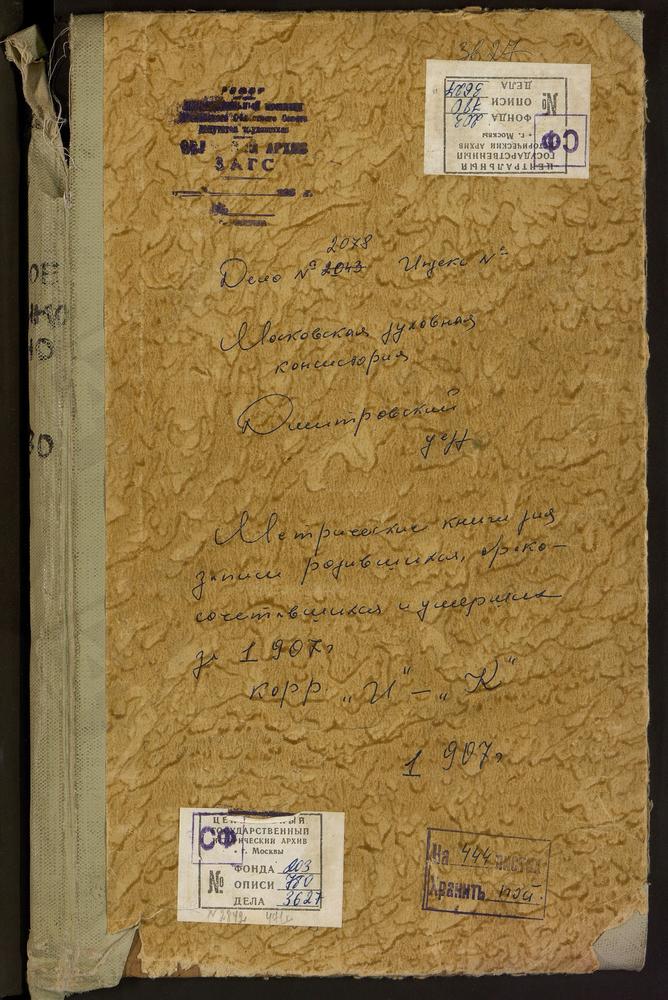 3627
ЦЕНТРАЛЬНЫЙ
ГОСУДАРСТВЕННЫЙ
ИСТОРИЧЕСКИЙ АРХИВ
г. Москвы
СФ
№
ФОНДА 203
ОПИСИ 780
ДЕЛА 3627
АРХИВ
ЗАГС
2078
Дело № 2043 Индекс №
Московская духовная
консистория
Дмитровский
уезд
Метрические книги для
записи родившихся, брако-
сочетавшихся и умерших
за 1907г
корр. "И" – "К"
1907г
ГОСУДАРСТВЕННЫЙ
ИСТОРИЧЕСКИЙ АРХИВ
г. Москвы
СФ
№
ФОНДА 203
ОПИСИ 780
ДЕЛА 3627
На 444 листах
Хранить пост.